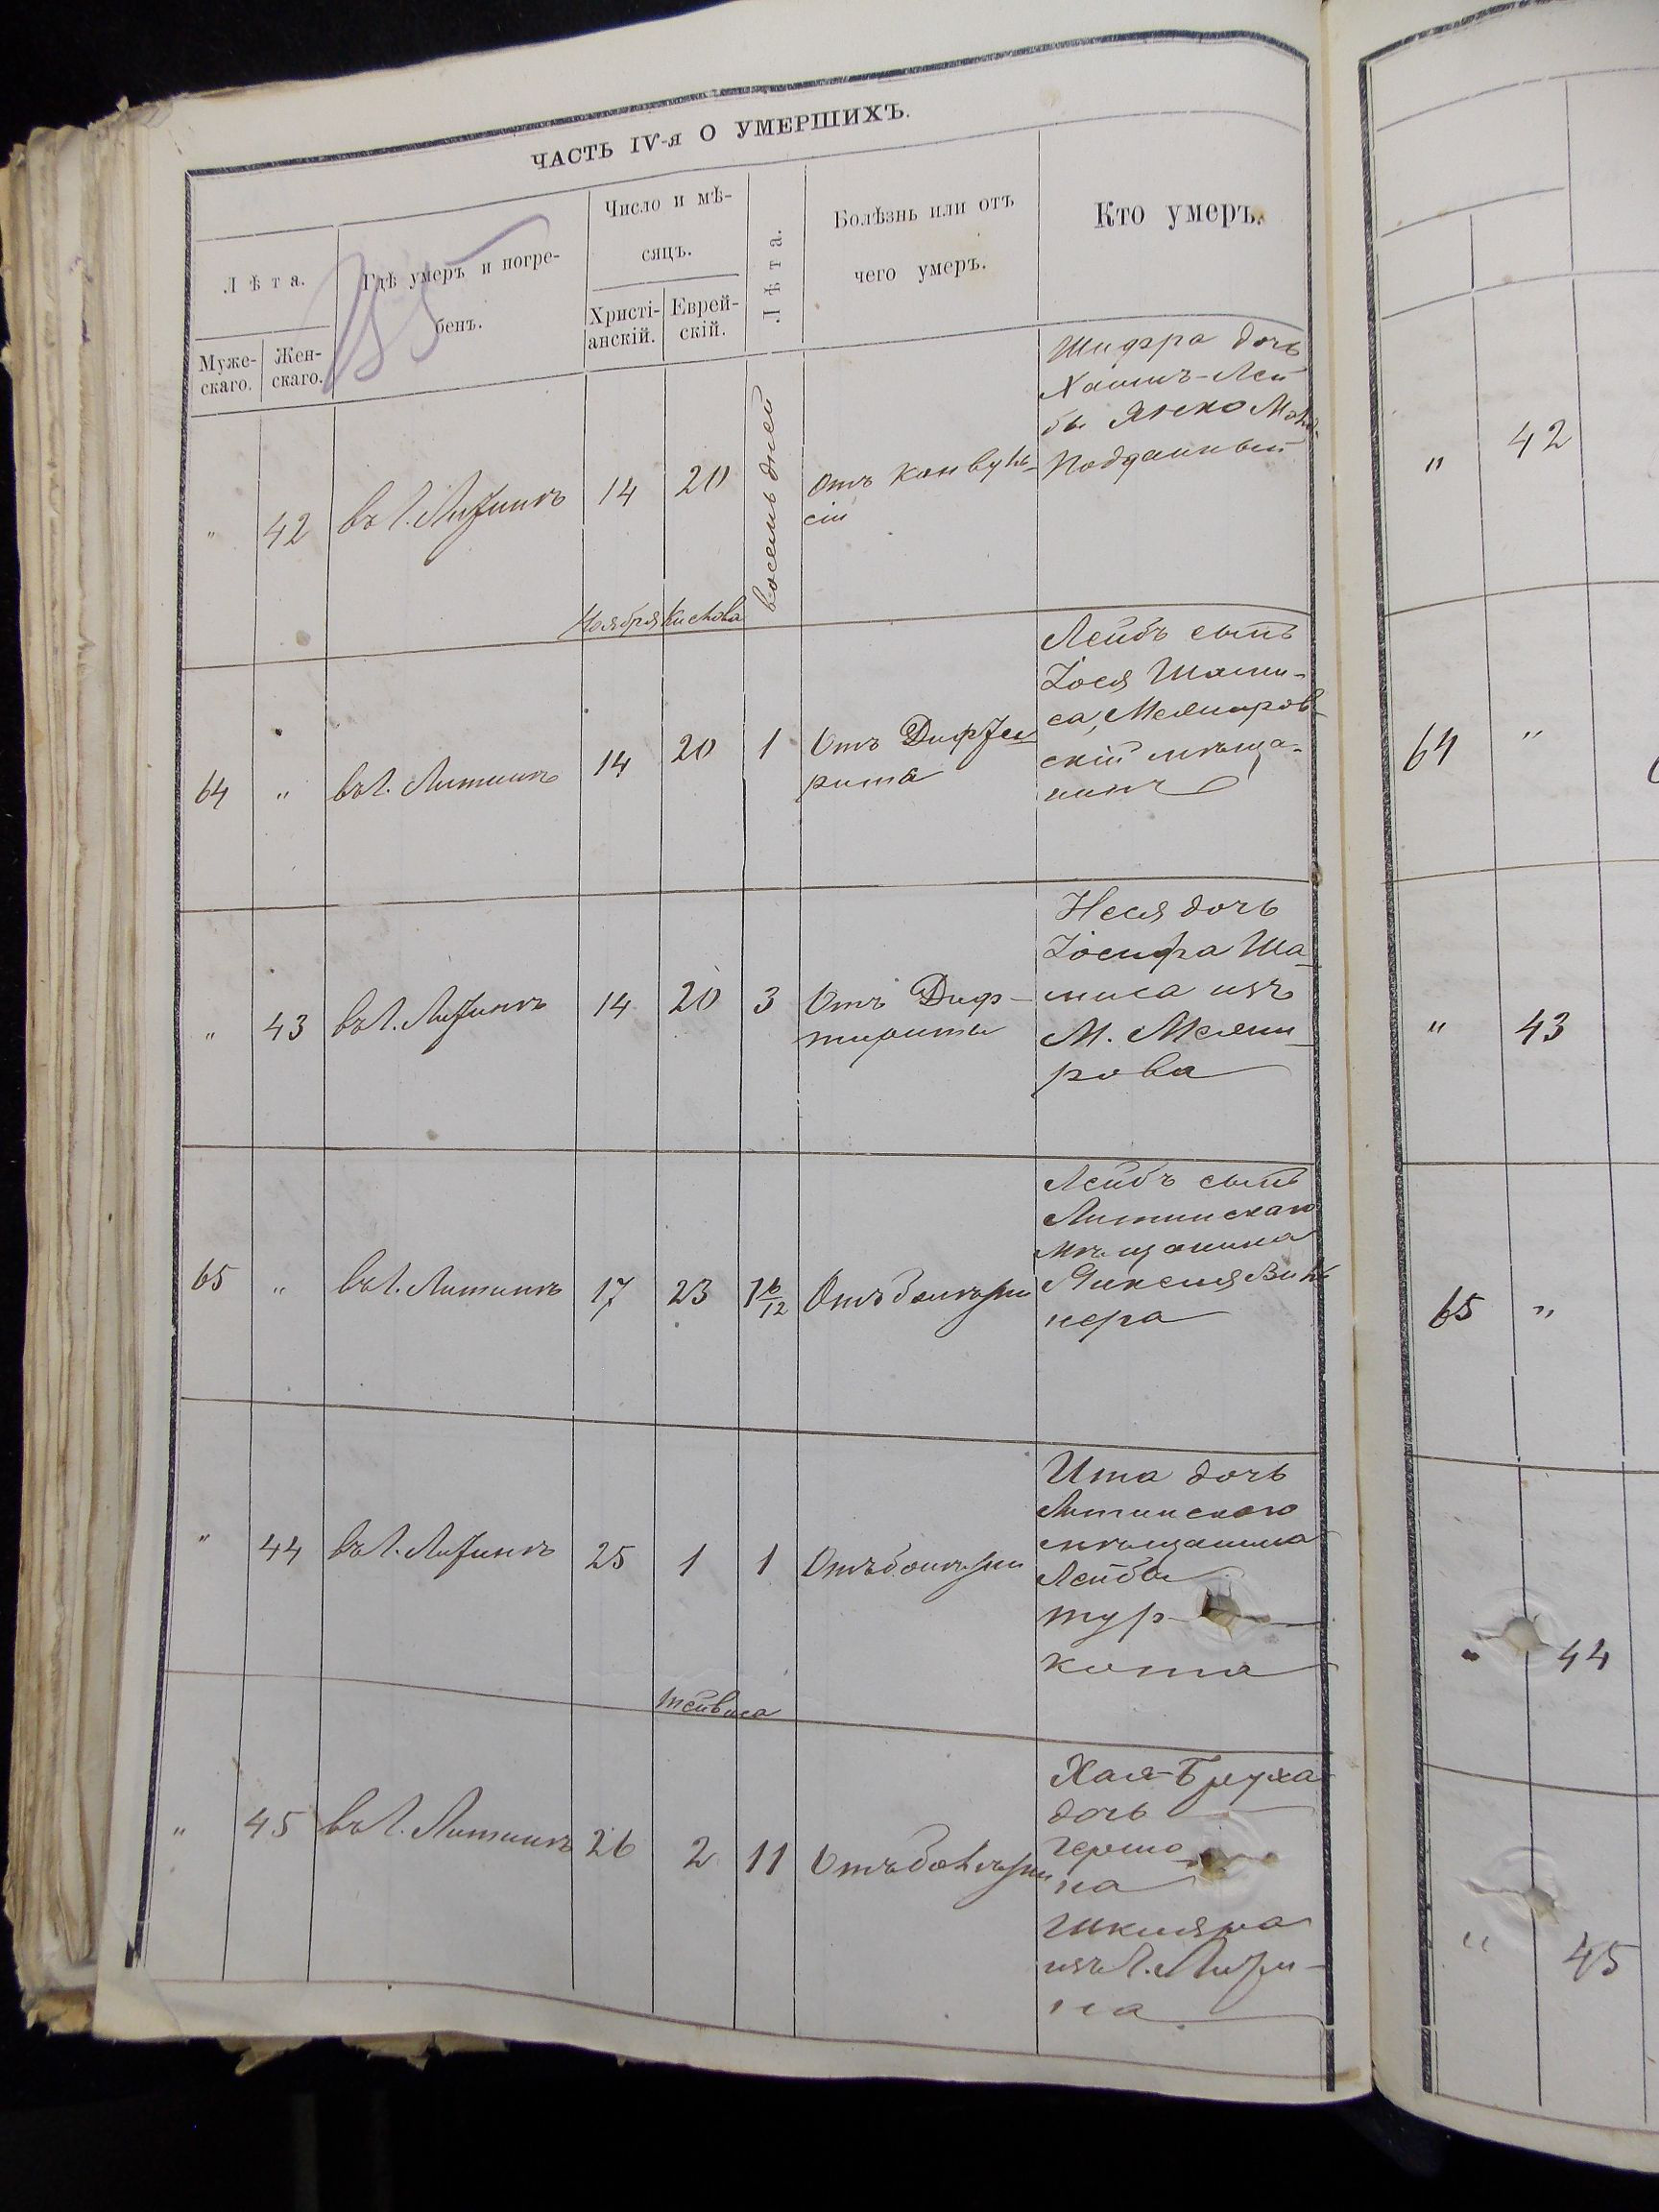 ЧАСТЬ IV-я О УМЕРШИХЪ.
Лѣта.
Муже-
скаго.
Жен-
скаго.
Гдѣ умеръ и погре-
бенъ.
Число и мѣ-
сяцъ.
Христі-
анскій.
Еврей-
скій.
Лѣта.
Болѣзнь или отъ
чего умеръ.
Кто умеръ.
" 42 въ г. Литинѣ 14 20 восемь дней
Отъ конвуль-
сіи
Шифра дочь
Хаимъ-Лей
бы
Подданный
Ноября Кислова
64 " въ г. Литинѣ 14 20 1
Отъ Дифте
рита
Лейбъ сынъ
Іося Шами-
са, Межиров-
скій мѣща-
нинъ
" 43 въ г. Литинѣ 14 20 3
Отъ Диф-
терита
Нися дочь
Іосифа Ша-
миса изъ
М. Межи-
рова
65 " въ г. Литинѣ 17 23 1 6/12 Отъ болѣзни
Лейбъ сынъ
Литинскаго
мѣщанина
нера
" 44 въ г. Литинѣ 25 1 1 Отъ болѣзни
Ита дочь
Литинскаго
мѣщанина
Лейба
Тур-
кота
Тейвеса
" 45 въ г. Литинѣ 26 2 11 Отъ болѣзни
Хая-Бруха
дочь
Гершо
на
Шкляра
изъ г. Лити-
на
" 42
64 "
" 43
65 "
" 44
" 45